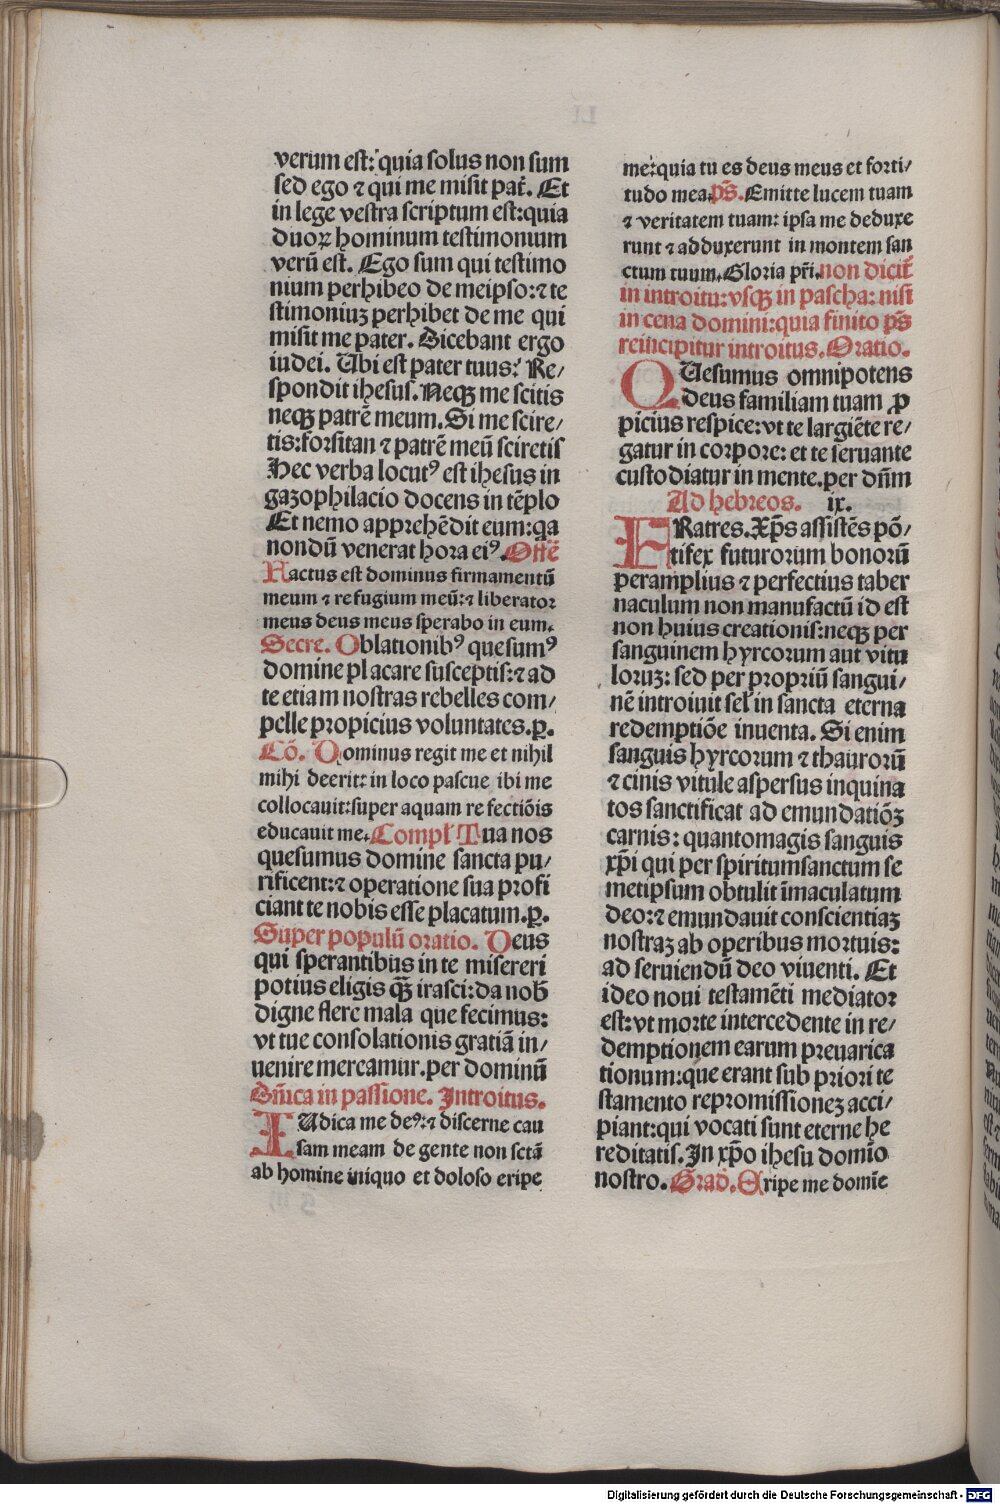 verum est: quia solus non sum
sed ego ⁊ qui me misit pat̄. Et
in lege vestra scriptum est: quia
duoꝝ hominum testimonium
verū est. Ego sum qui testimo
nium perhibeo de meipso: ⁊ te
stimoniuꝫ perhibet de me qui
misit me pater. Dicebant ergo
iudei. Ubi est pater tuus? Re/
spondit ihesus. Neqꝫ me scitis
neqꝫ patrē meum. Si me scire/
tis: forsitan ⁊ patrē meū sciretis
Hec verba locutꝰ est ihesus in
gazophilacio docens in tēplo
Et nemo apprehēdit eum: qa
nondū venerat hora eiꝰ. Offē
Factus est dominus firmamentū
meum ⁊ refugium meū: ⁊ liberator
meus deus meus sperabo in eum.
Secre. Oblationibꝰ quesumꝰ
domine placare susceptis: ⁊ ad
te etiam nostras rebelles com/
pelle propicius voluntates. ꝑ.
Cō. Dominus regit me et nihil
mihi deerit: in loco pascue ibi me
collocauit: super aquam refectiōis
educauit me. Compl̄ Tua nos
quesumus domine sancta pu/
rificent: ⁊ operatione sua profi
ciant te nobis esse placatum. ꝑ.
Super populū oratio. Deus
qui sperantibus in te misereri
potius eligis qꝫ irasci: da nob̄
digne flere mala que fecimus:
vt tue consolationis gratiā in/
uenire mercamur. per dominū
Dn̄ica in passione. Introitus.
IUdica me deꝰ: ⁊ discerne cau
sam meam de gente non sctā
ab homine iniquo et doloso eripe
me: quia tu es deus meus et forti/
tudo mea. p̄s. Emitte lucem tuam
⁊ veritatem tuam: ipsa me deduxe
runt ⁊ adduxerunt in montem san
ctum tuum. Gloria pr̄i. non dicit̄
in introitu: vsqꝫ in pascha: nisi
in cena domini: quia finito p̄s
reincipitur introitus. Oratio.
QUesumus omnipotens
deus familiam tuam ꝓ
picius respice: vt te largiēte re/
gatur in corpore: et te seruante
custodiatur in mente. per dn̄m
Ad hebreos. ix.
FRatres. Xp̄s assistēs pō/
tifex futurorum bonorū
per amplius ⁊ perfectius taber
naculum non manufactū id est
non huius creationis: neqꝫ per
sanguinem hyrcorum aut vitu
loruꝫ: sed per propriū sangui/
nē introiuit sel̄ in sancta eterna
redemptiōe inuenta. Si enim
sanguis hyrcorum ⁊ thaurorū
⁊ cinis vitule aspersus inquina
tos sanctificat ad emundatiōꝫ
carnis: quantomagis sanguis
xp̄i qui per spiritumsanctum se
metipsum obtulit īmaculatum
deo: ⁊ emundauit conscientiaꝫ
nostraꝫ ab operibus mortuis:
ad seruiendū deo viuenti. Et
ideo noui testamēti mediator
est: vt morte intercedente in re/
demptionem earum preuarica
tionum: que erant sub priori te
stamento repromissioneꝫ acci/
piant: qui vocati sunt eterne he
reditatis. In xp̄o ihesu domīo
nostro. Grad̄. Eripe me domīe
Digitalisierung gefördert durch die Deutsche Forschungsgemeinschaft - DFG